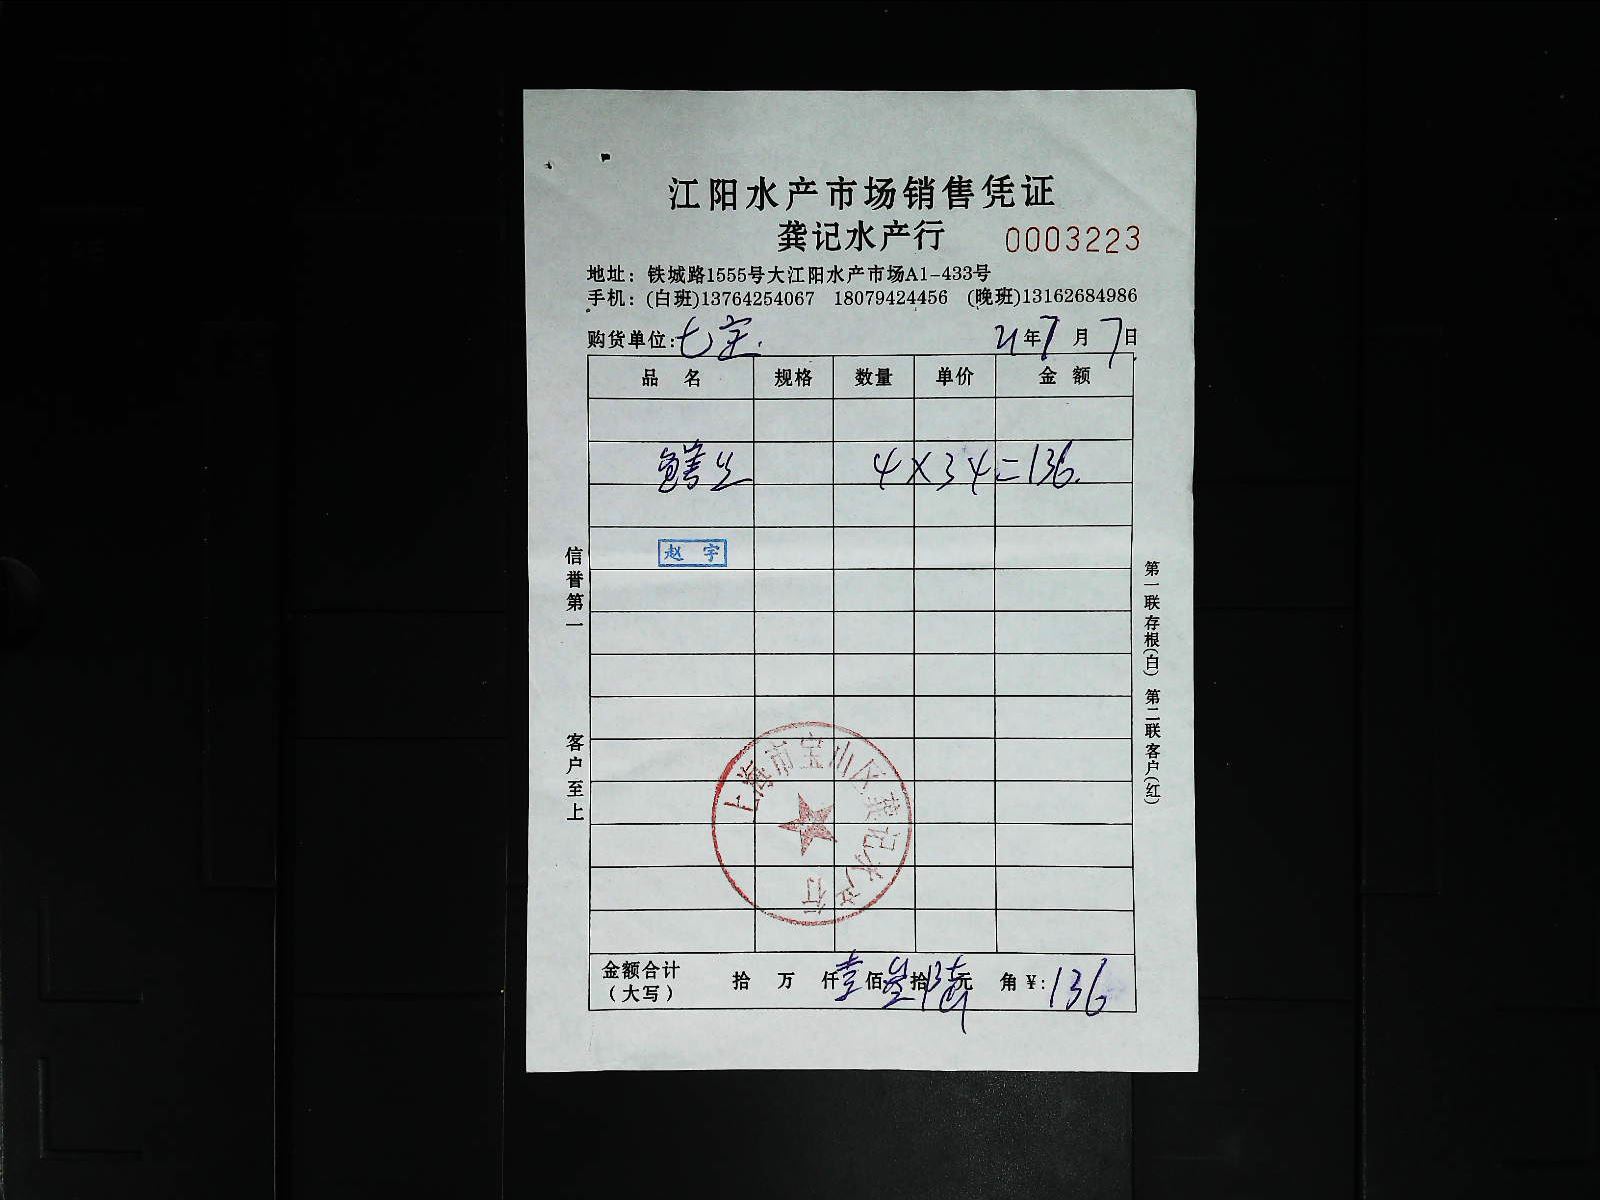 江阳水产市场销售凭证
龚记水产行 0003223
地址：铁城路1555号大江阳水产市场A1-433号
手机：(白班)13764254067 18079424456 (晚班)13162684986
购货单位：七宝. 21年7月7日
品名 规格 数量 单价 金额
鳝丝 4×34=136.
赵宇
信誉第一
客户至上
第一联存根(白) 第二联客户(红)
上海市宝山区龚记水产行
金额合计 拾 万 仟壹佰叁拾陆元 角 ¥：136
(大写)